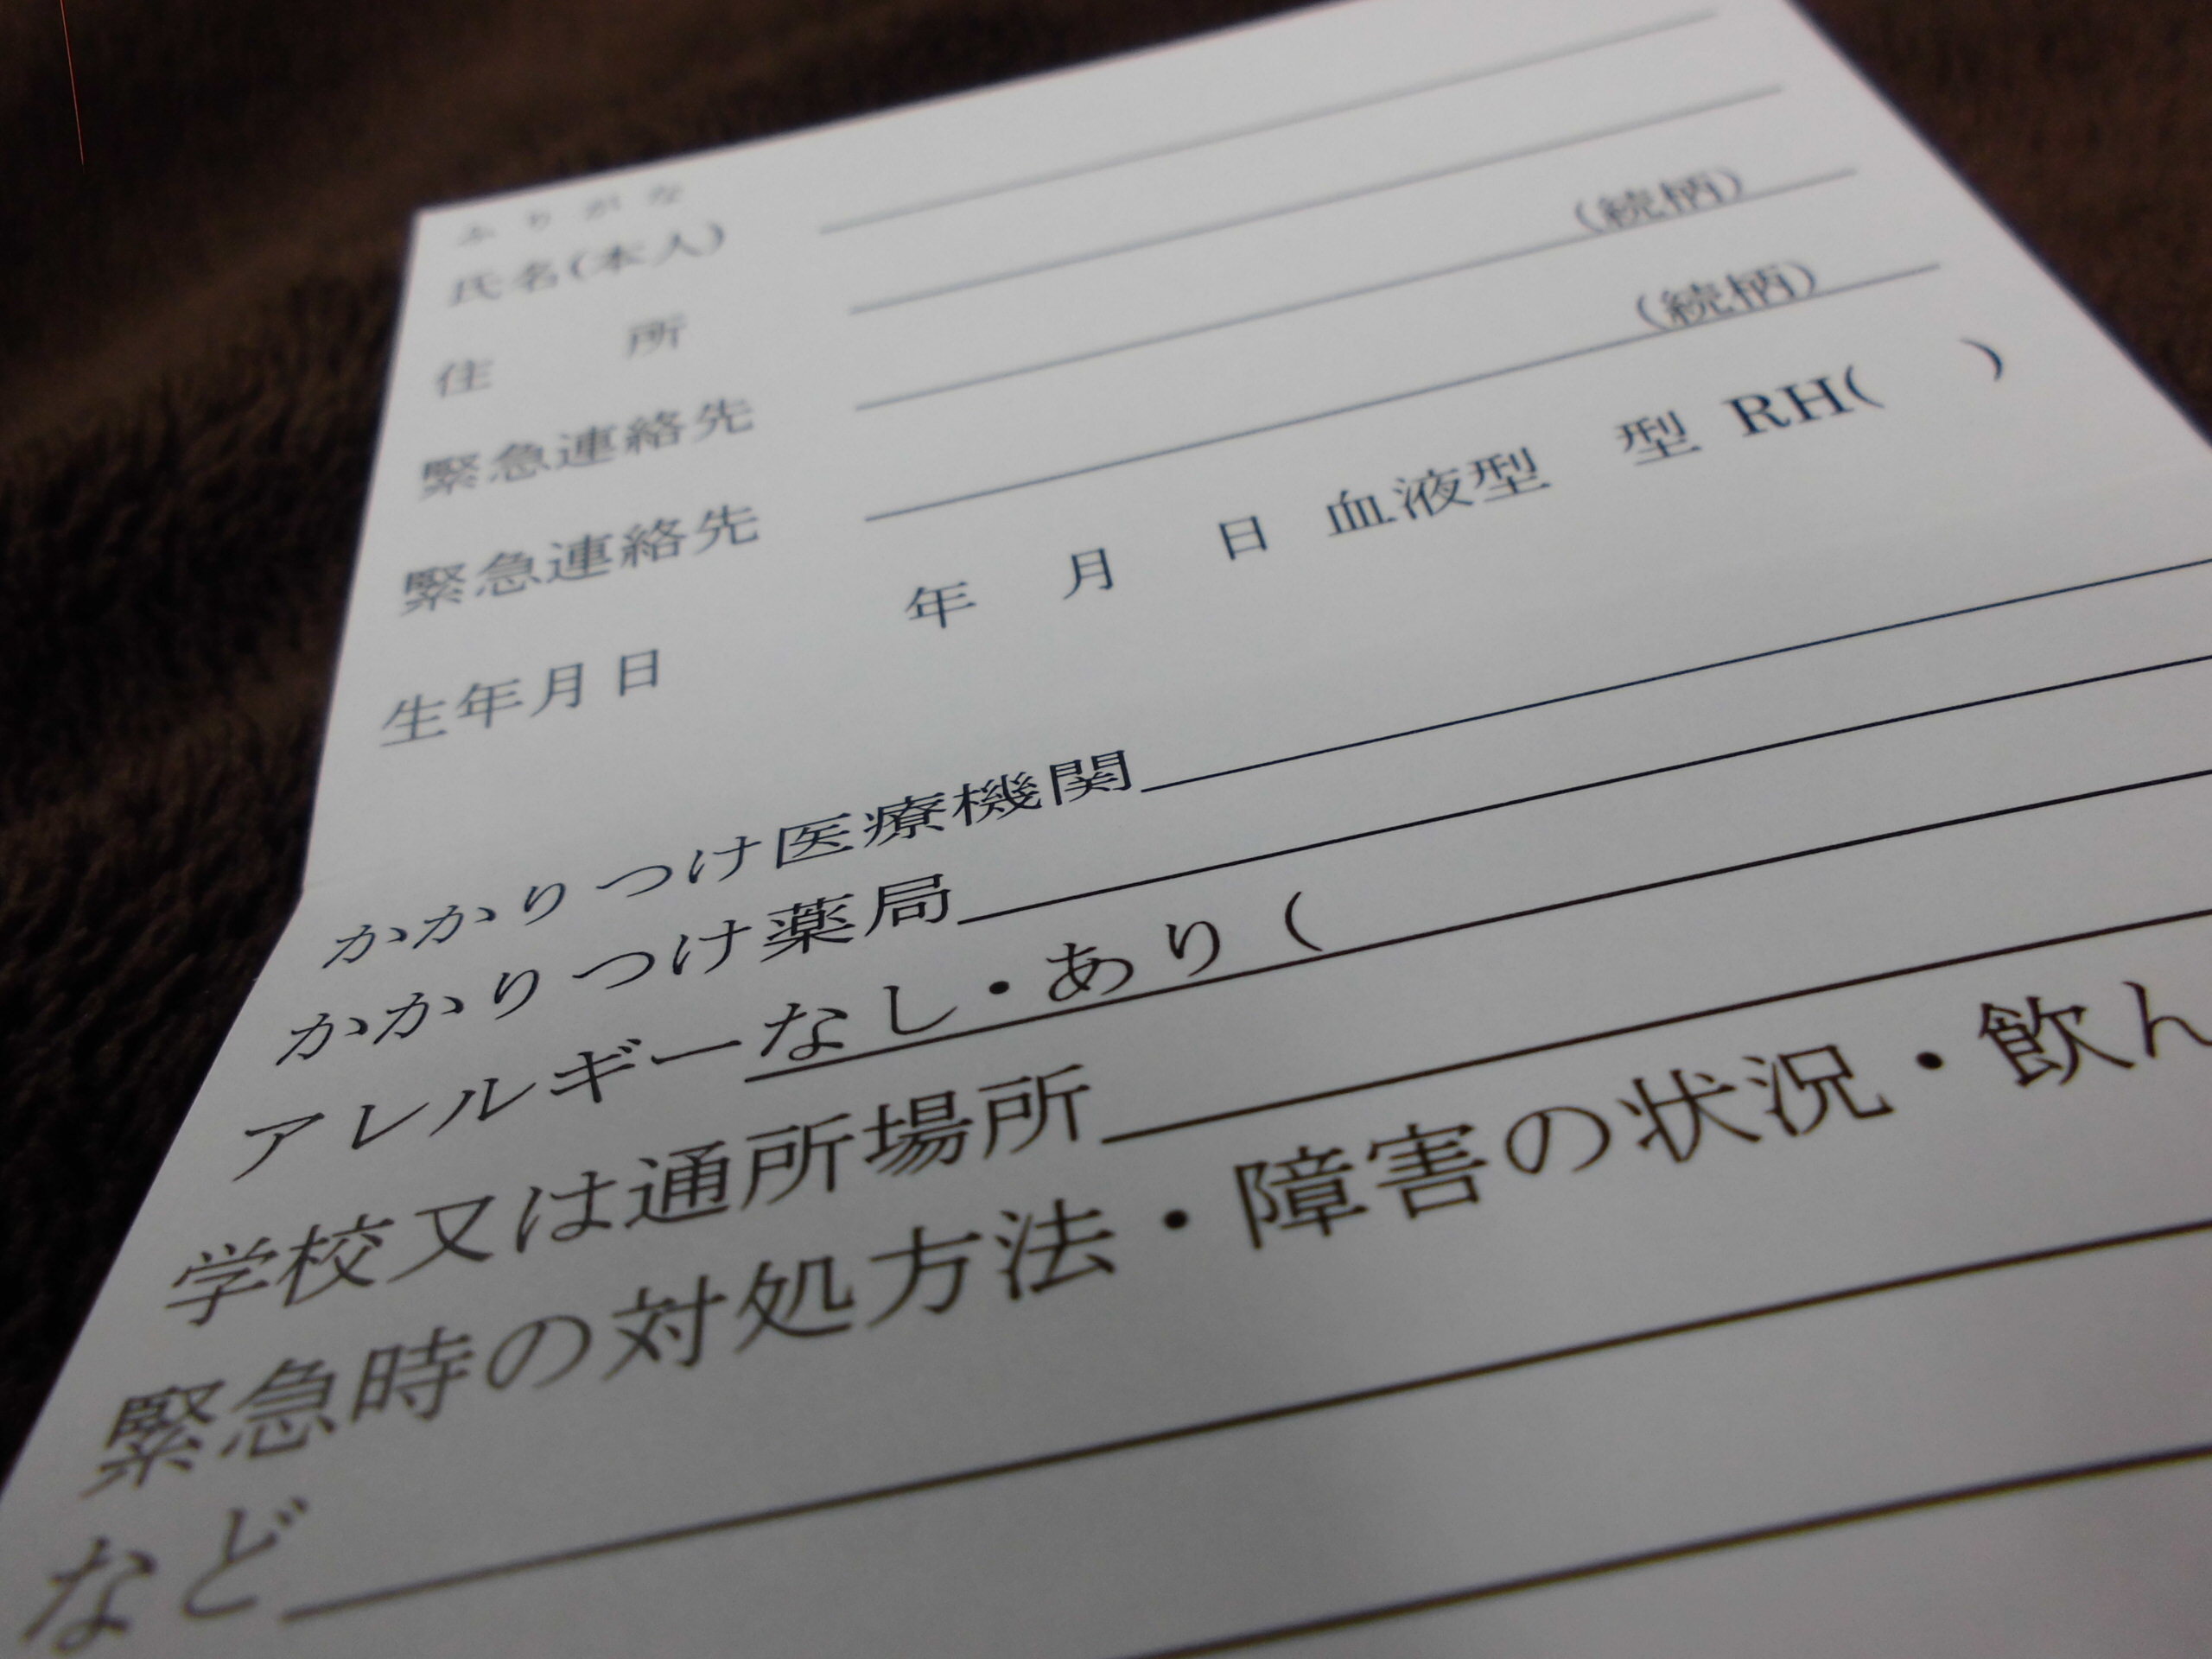 ふりがな
氏名(本人)
住　所
緊急連絡先　(続柄)
緊急連絡先　(続柄)
生年月日　年　月　日 血液型　型 RH(　)
かかりつけ医療機関
かかりつけ薬局
アレルギーなし・あり(
学校又は通所場所
緊急時の対処方法・障害の状況・飲ん
など